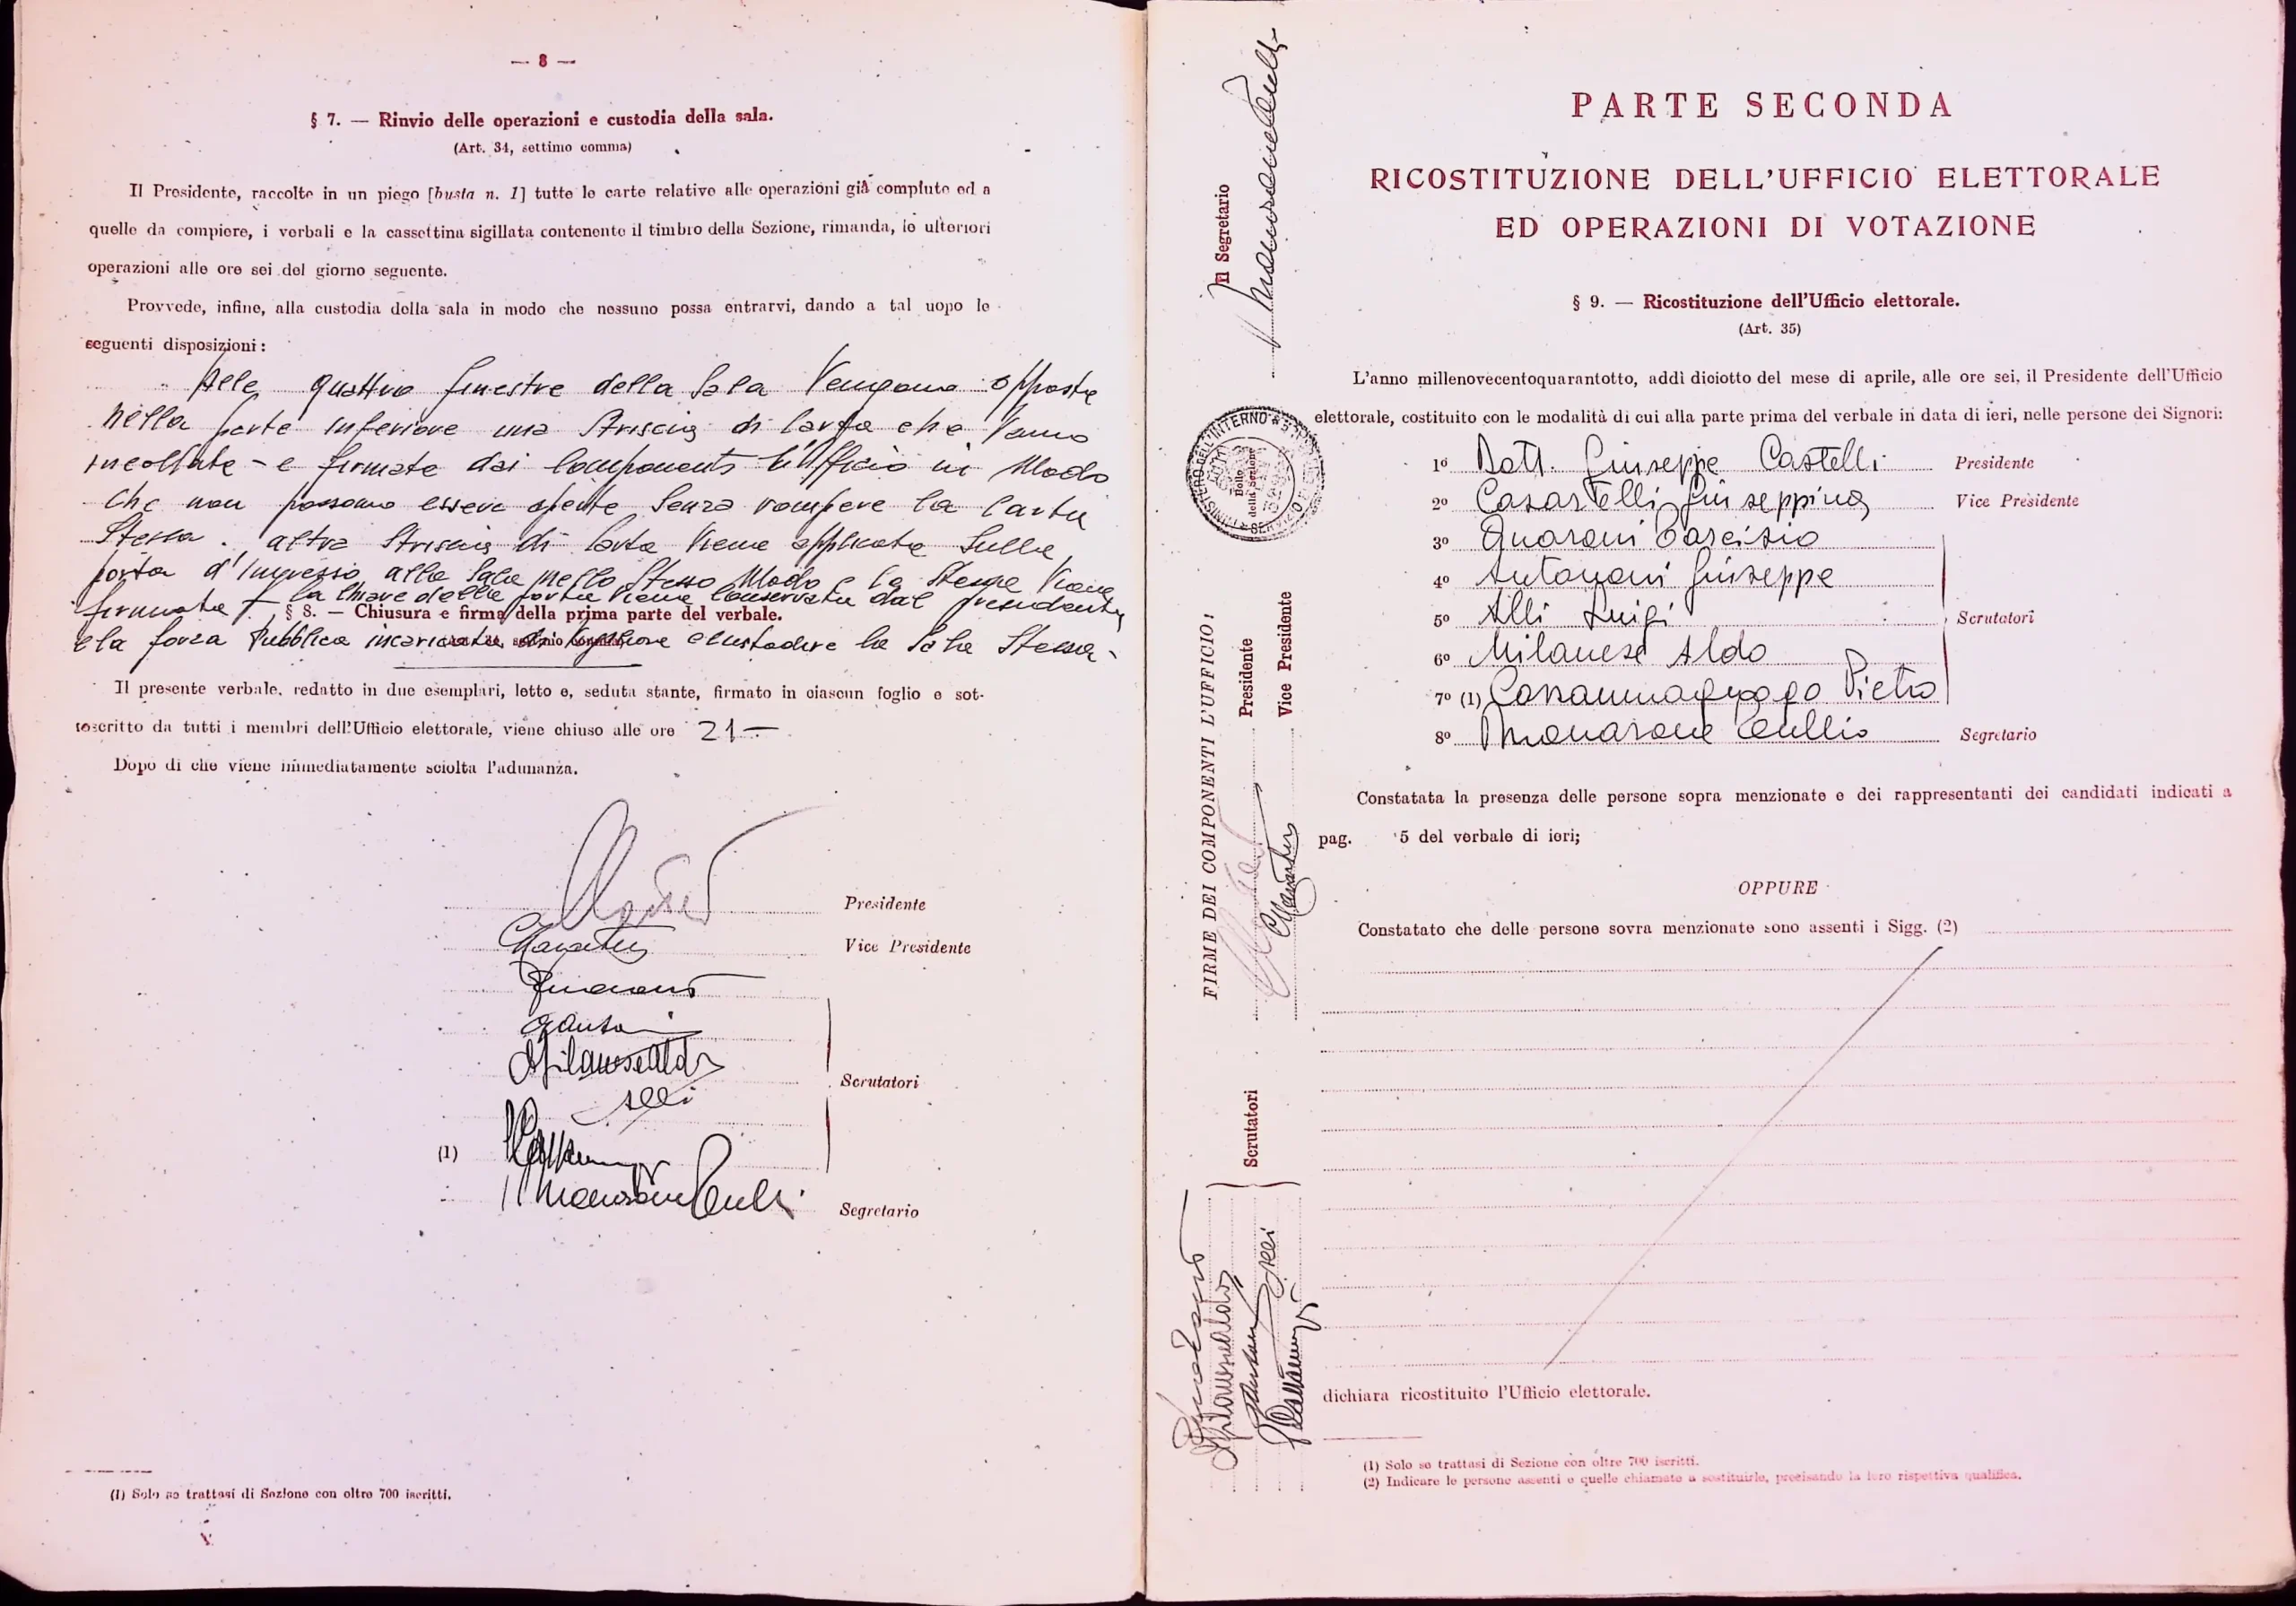 — 8 —
§ 7. — Rinvio delle operazioni e custodia della sala.
(Art. 34, settimo comma)
Il Presidente, raccolte in un piego [busta n. 1] tutte le carte relative alle operazioni già compiute ed a
quelle da compiere, i verbali e la cassettina sigillata contenente il timbro della Sezione, rimanda, le ulteriori
operazioni alle ore sei del giorno seguente.
Provvede, infine, alla custodia della sala in modo che nessuno possa entrarvi, dando a tal uopo le
seguenti disposizioni:
Alle quattro finestre della Sala vengono apposte
nella parte inferiore una striscia di carta che vanno
incollate - e firmate dai componenti l'ufficio in modo
che non possono essere aperte senza rompere la carta
stessa. altra striscia di carta viene applicata sulla
porta d'ingresso alla Sala nello stesso modo e la stessa viene
firmata - la chiave della porta viene conservata dal presidente
§ 8. — Chiusura e firma della prima parte del verbale.
e la forza pubblica incaricata custodire la Sala stessa -
Il presente verbale, redatto in due esemplari, letto e, seduta stante, firmato in ciascun foglio e sot-
toscritto da tutti i membri dell'Ufficio elettorale, viene chiuso alle ore 21 —
Dopo di che viene immediatamente sciolta l'adunanza.
Presidente
Vice Presidente
Milanese Aldo
Scrutatori
Alli
(1)
Segretario
(1) Solo se trattasi di Sezione con oltre 700 iscritti.
Il Segretario
FIRME DEI COMPONENTI L'UFFICIO:
Presidente
Vice Presidente
Scrutatori
Milanese Aldo
Alli
MINISTERO DELL'INTERNO
Bollo
della Sezione
PARTE SECONDA
RICOSTITUZIONE DELL'UFFICIO ELETTORALE
ED OPERAZIONI DI VOTAZIONE
§ 9. — Ricostituzione dell'Ufficio elettorale.
(Art. 35)
L'anno millenovecentoquarantotto, addì diciotto del mese di aprile, alle ore sei, il Presidente dell'Ufficio
elettorale, costituito con le modalità di cui alla parte prima del verbale in data di ieri, nelle persone dei Signori:
1º Dott. Giuseppe Castelli Presidente
2º Casartelli Giuseppina Vice Presidente
3º Quaroni Tarcisio
4º Antonioni Giuseppe
5º Alli Luigi Scrutatori
6º Milanese Aldo
7º (1) Pietro
8º Monarone Tullio Segretario
Constatata la presenza delle persone sopra menzionate e dei rappresentanti dei candidati indicati a
pag. 5 del verbale di ieri;
OPPURE
Constatato che delle persone sovra menzionate sono assenti i Sigg. (2)
dichiara ricostituito l'Ufficio elettorale.
(1) Solo se trattasi di Sezione con oltre 700 iscritti.
(2) Indicare le persone assenti e quelle chiamate a sostituirle, precisando la loro rispettiva qualifica.